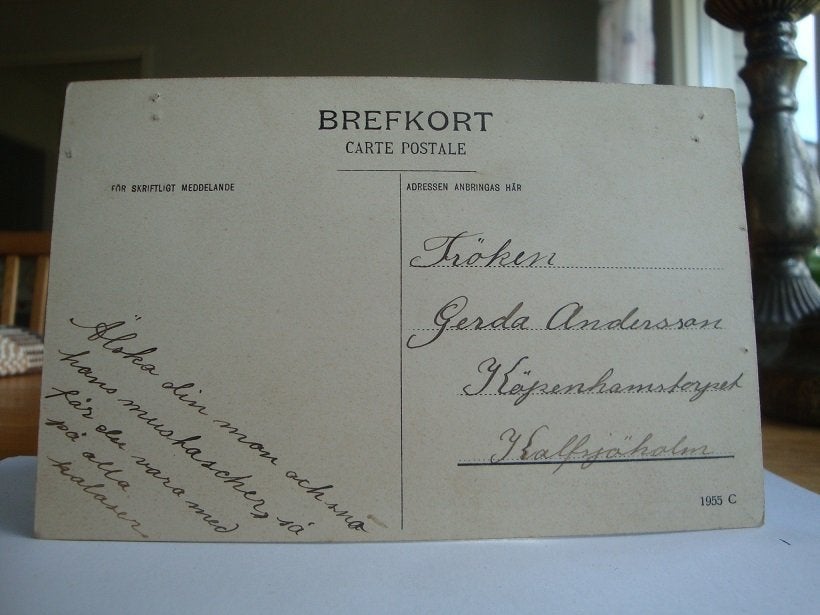 BREFKORT
CARTE POSTALE
FÖR SKRIFTLIGT MEDDELANDE
ADRESSEN ANBRINGAS HÄR
Älska din man och sno
hans mustascher, så
får du vara med
på alla
kalaser.
Fröken
Gerda Andersson
Köpenhamstorpet
Kalfsjöholm
1955 C